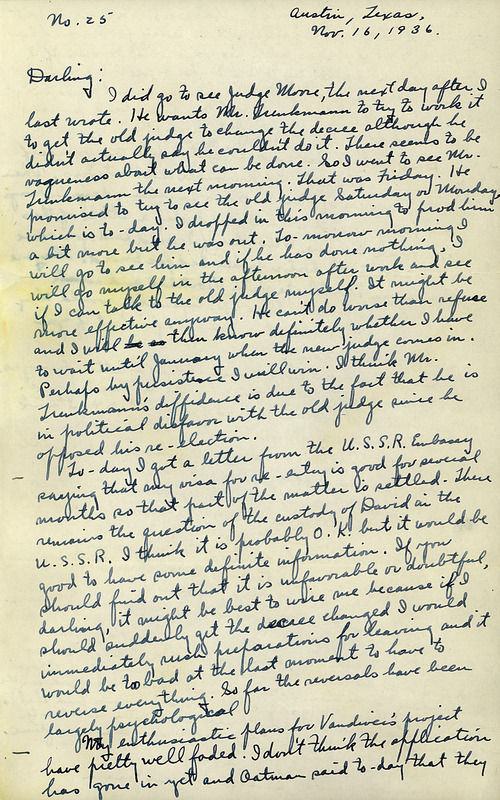 No. 25
Austin, Texas,
Nov. 16, 1936.
Darling:
I did go to see Judge Moore, the next day after I
last wrote. He wants Mr. Trenkmann to try to work it
to get the old judge to change the decree although he
didn't actually say he couldn't do it. There seems to be
vagueness about what can be done. So I went to see Mr.
Trenkmann the next morning. That was Friday. He
promised to try to see the old judge Saturday or Monday,
which is to-day. I dropped in this morning to prod him
a bit more but he was out. To-morrow morning I
will go to see him and if he has done nothing, I
will go myself in the afternoon after work and see
if I can talk to the old judge myself. It might be
more effective anyway. He can't do worse than refuse
and I will then know definitely whether I have
to wait until January when the new judge comes in.
Perhaps by persistence I will win. I think Mr.
Trenkmann's diffidence is due to the fact that he is
in political disfavor with the old judge since he
opposed his re-election.
To-day I got a letter from the U.S.S.R. Embassy
saying that my visa for re-entry is good for several
months so that part of the matter is settled. There
remains the question of the custody of David in the
U.S.S.R. I think it is probably O.K. but it would be
good to have some definite information. If you
should find out that it is unfavorable or doubtful,
darling, it might be best to wire me because if I
should suddenly get the decree changed I would
immediately rush preparations for leaving and it
would be too bad at the last moment to have to
reverse everything. So far the reversals have been
largely psychological
My enthusiastic plans for Vandiver's project
have pretty well faded. I don't think the application
has gone in yet and Oatman said to-day that they